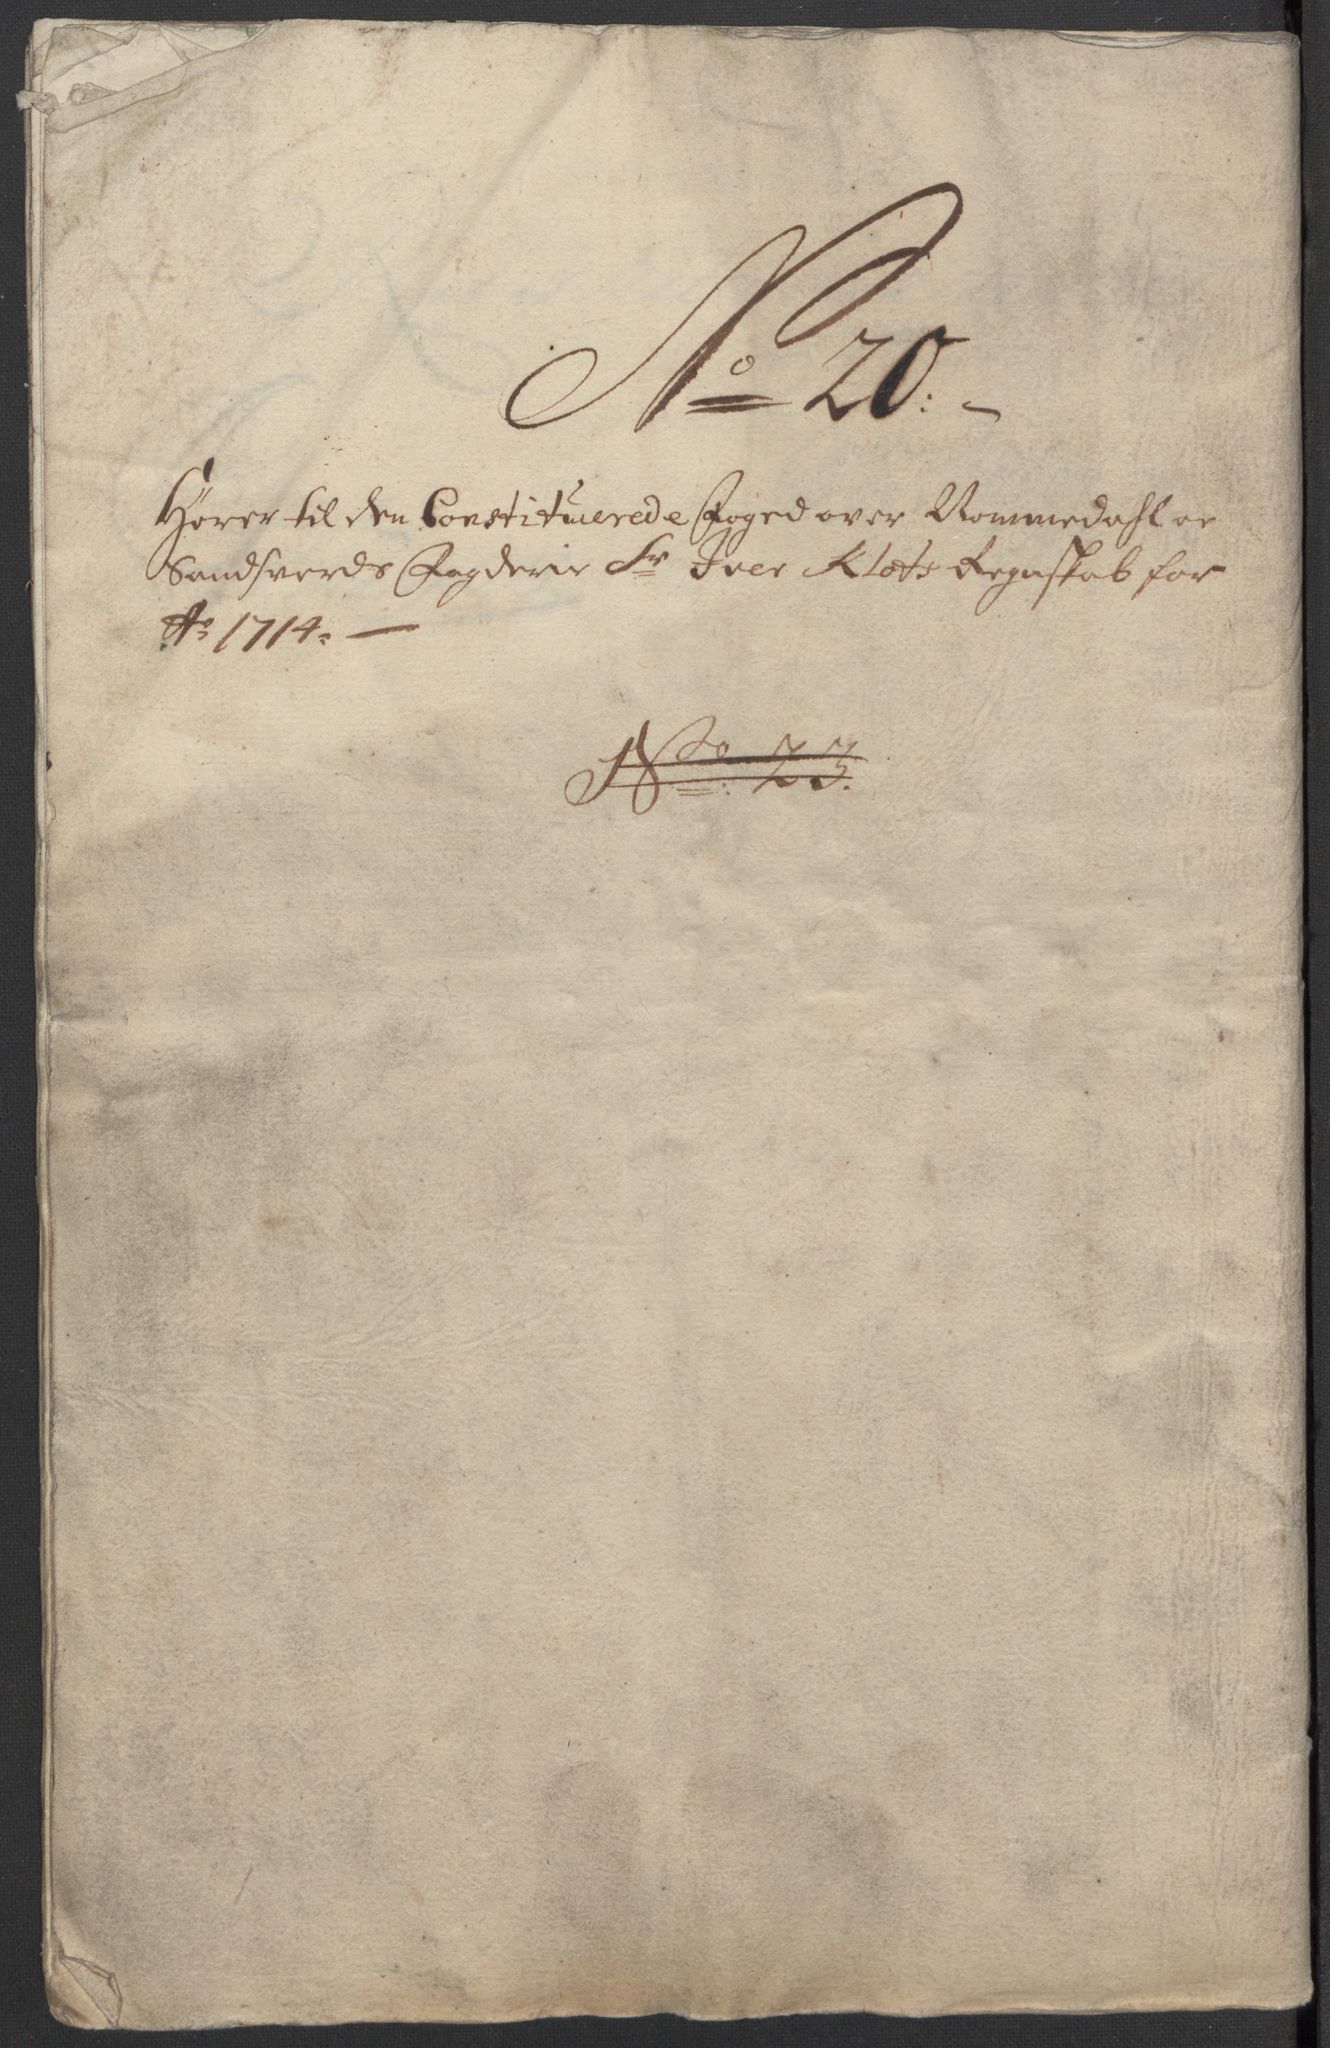 No 20.
Hører til den Constituerede Foged over Nommedahl oc
Sandsverds Fogderie Sr Iver Kloets Regnskab for
Ao 1714.
No. 23.